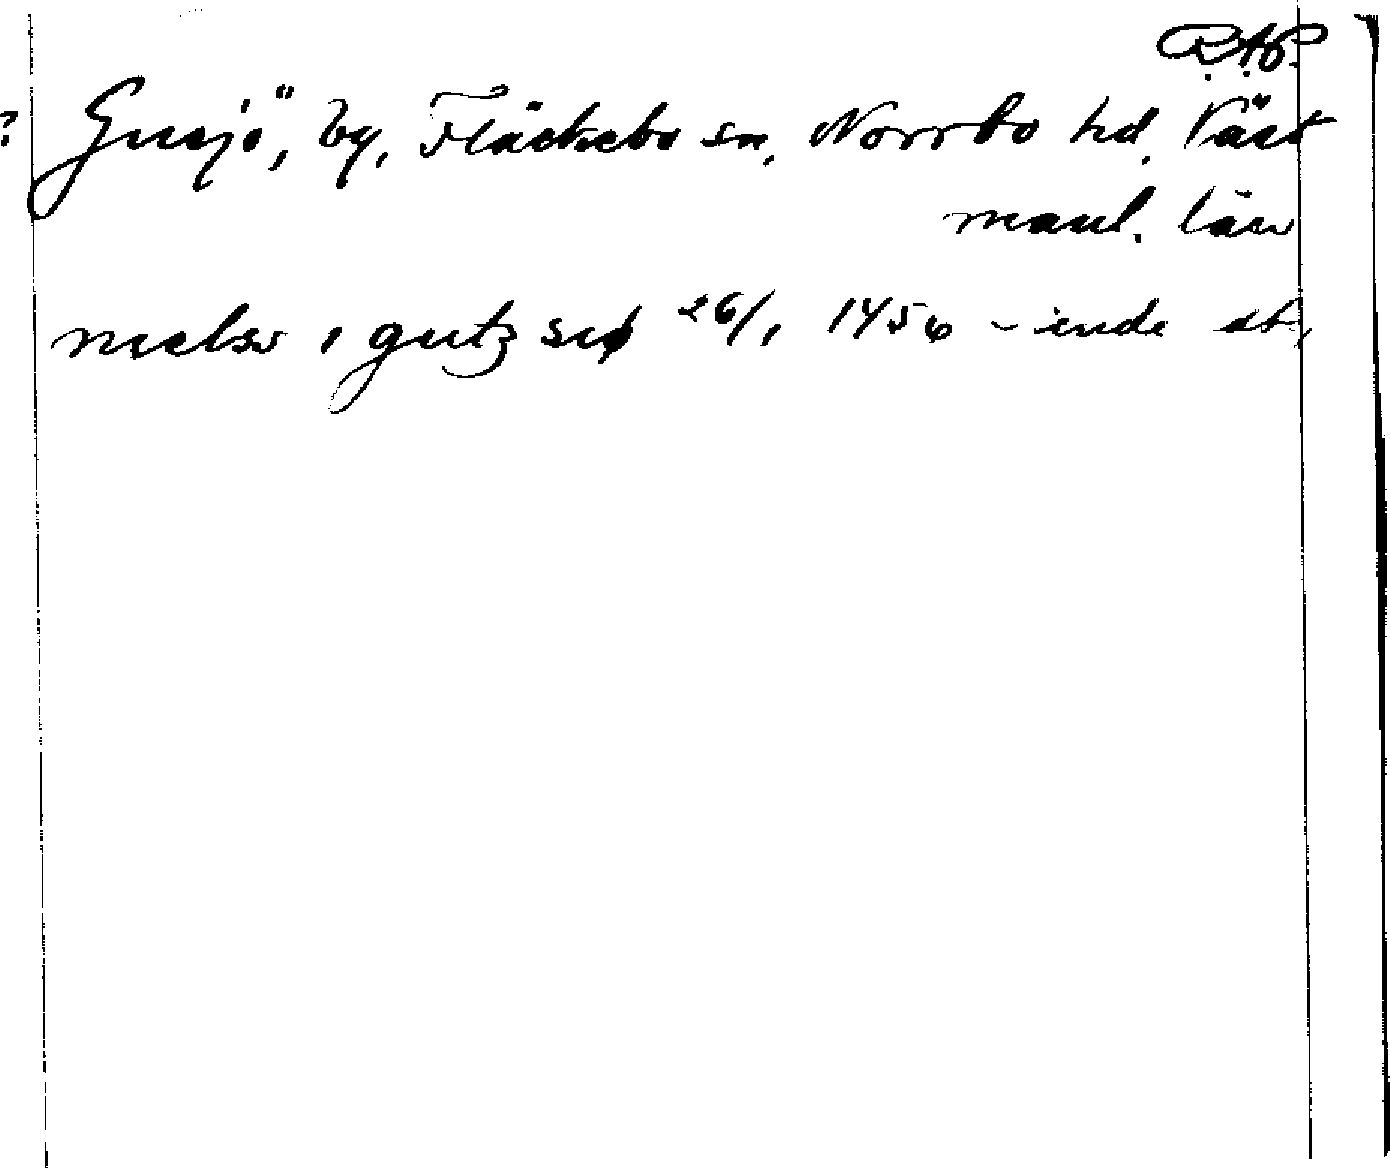 R.A.P.
? Gusjö, by, Fläckebo sn, Norrbo hd, Väst
manl. län
nielss i gutz siø 26/1 1456 - ende st,